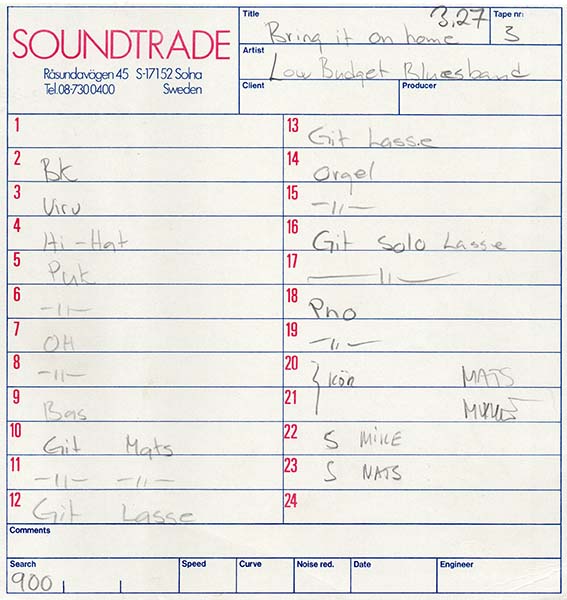 SOUNDTRADE
Råsundavägen 45 S-17152 Solna
Tel.08-730 0400 Sweden
Title Bring it on home 3,27
Tape nr: 3
Artist Low Budget Bluesband
Client
Producer
1
2 Bk
3 Viru
4 Hi-Hat
5 Puk
6 -11-
7 OH
8 -11-
9 Bas
10 Git Mats
11 -11- -11-
12 Git Lasse
13 Git Lasse
14 Orgel
15 -11-
16 Git Solo Lasse
17 -11-
18 Pno
19 -11-
20 Kör MATS
21
22 S MIKE
23 S MATS
24
Comments
Search 900
Speed
Curve
Noise red.
Date
Engineer